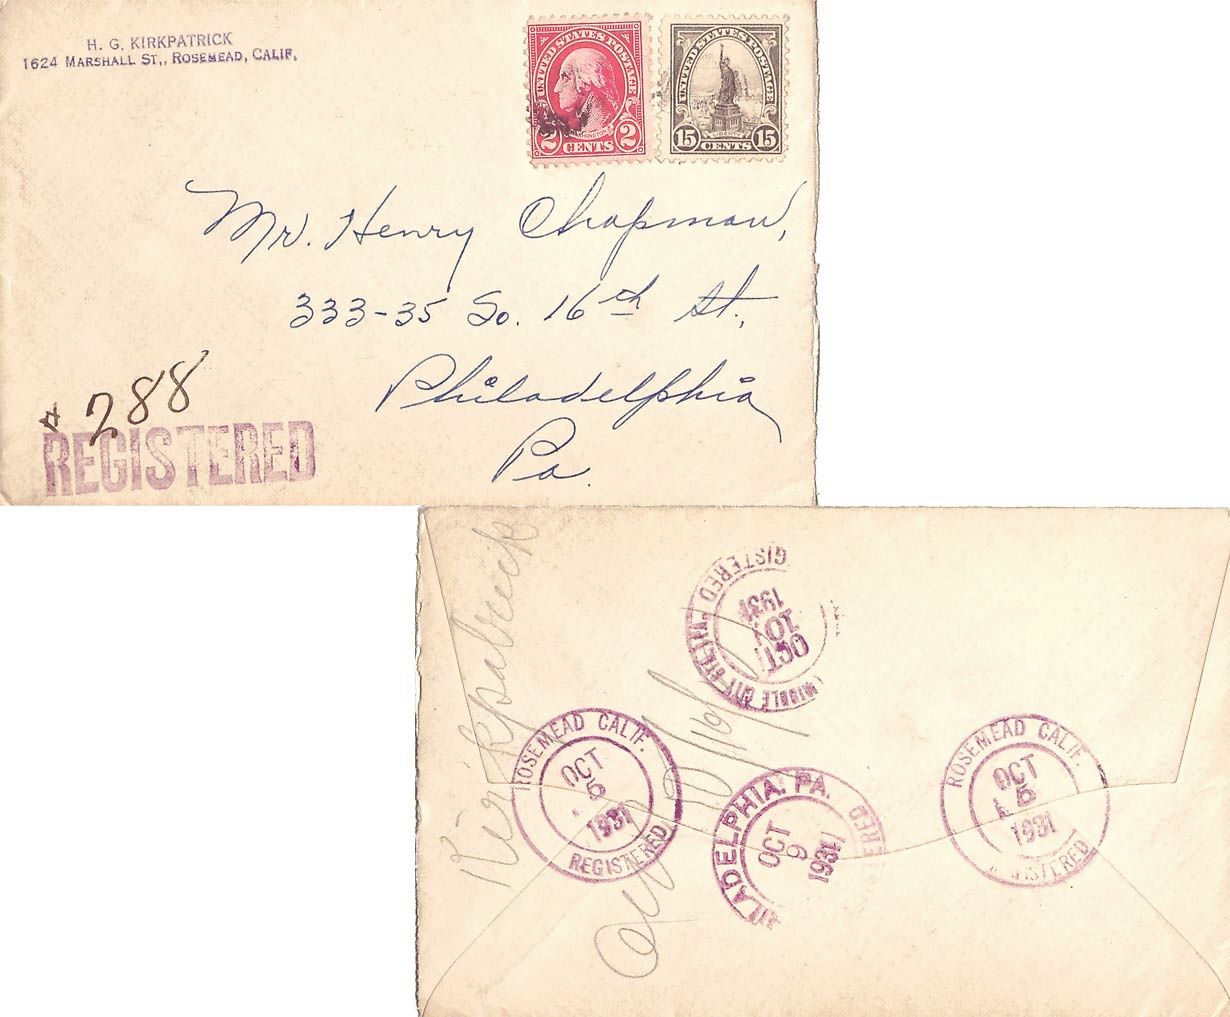 H. G. KIRKPATRICK
1624 MARSHALL ST., ROSEMEAD, CALIF,
UNITED STATES POSTAGE
WASHINGTON
2 CENTS 2
UNITED STATES POSTAGE
LIBERTY
15 CENTS 15
Mr. Henry Chapman,
333-35 So. 16th St.,
Philadelphia
Pa.
# 288
REGISTERED
Kirkpatrick
GISTERED PHILA
MIDDLE CITY STA.
OCT
10
1931
ROSEMEAD CALIF.
OCT
5
1931
REGISTERED
ILADELPHIA, PA.
OCT
9
1931
ERED
ROSEMEAD CALIF.
OCT
5
1931
GISTERED